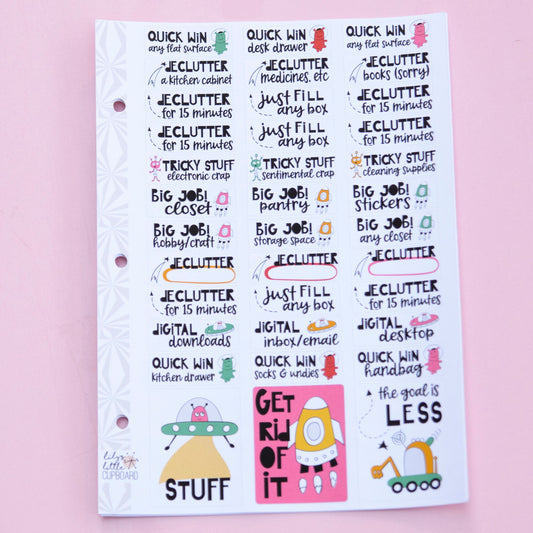 QUICK WIN
any flat surface
QUICK WIN
desk drawer
QUICK WIN
any flat surface
DECLUTTER
a kitchen cabinet
DECLUTTER
medicines, etc
DECLUTTER
books (sorry)
DECLUTTER
for 15 minutes
just fill
any box
DECLUTTER
for 15 minutes
DECLUTTER
for 15 minutes
just fill
any box
DECLUTTER
for 15 minutes
TRICKY STUFF
electronic crap
TRICKY STUFF
sentimental crap
TRICKY STUFF
cleaning supplies
BIG JOB!
closet
BIG JOB!
pantry
BIG JOB!
stickers
BIG JOB!
hobby/craft
BIG JOB!
storage space
BIG JOB!
any closet
DECLUTTER
DECLUTTER
DECLUTTER
DECLUTTER
for 15 minutes
just fill
any box
DECLUTTER
for 15 minutes
DIGITAL
downloads
DIGITAL
inbox/email
DIGITAL
desktop
QUICK WIN
kitchen drawer
QUICK WIN
socks & undies
QUICK WIN
handbag
STUFF
GET
RID
OF
IT
the goal is
LESS
lily's
little
CUPBOARD